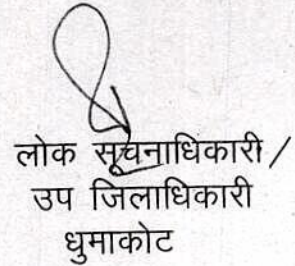 लोक सूचनाधिकारी /
उप जिलाधिकारी
धुमाकोट